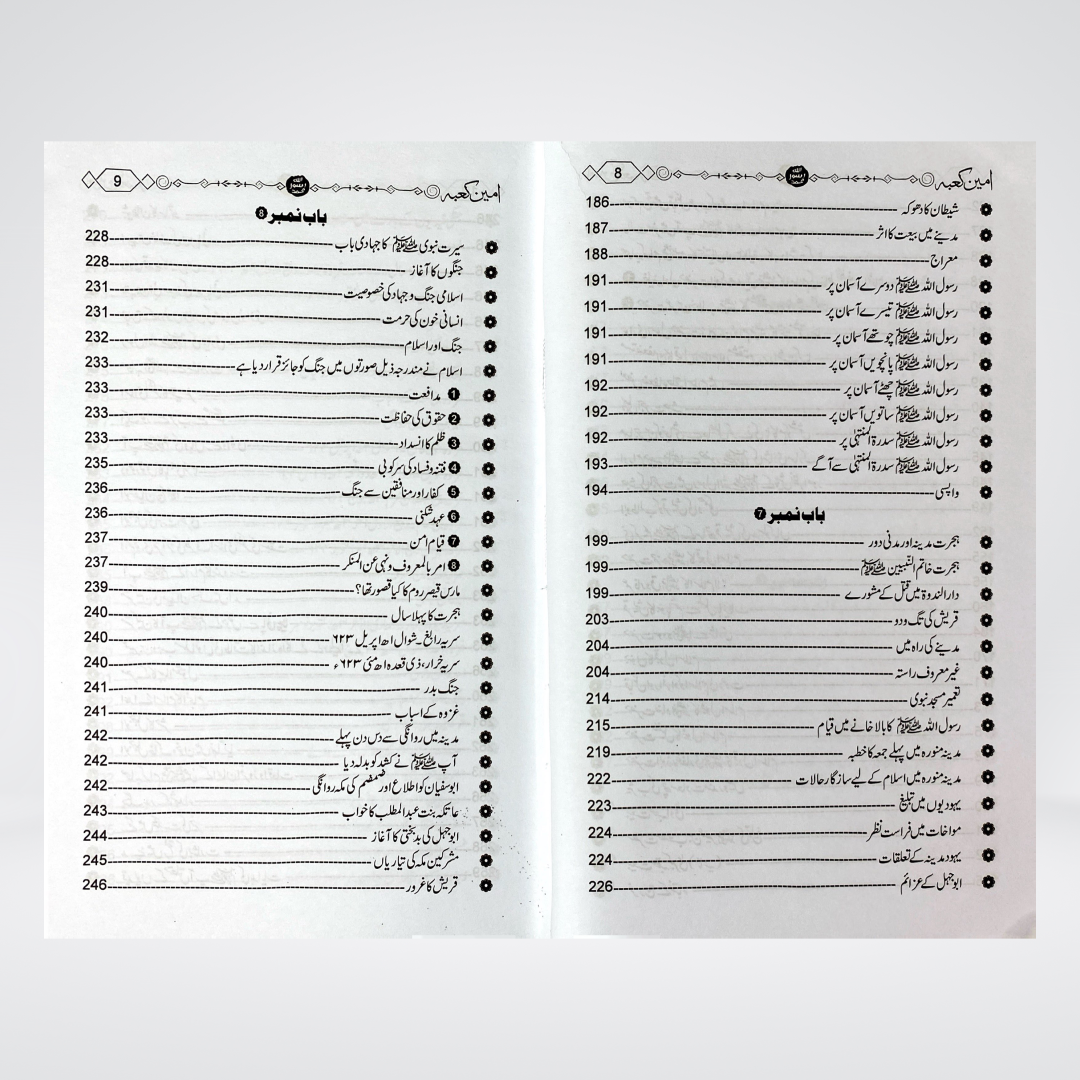 امین کعبہ 8
شیطان کا دھوکہ 186
مدینے میں بیعت کا اثر 187
معراج 188
رسول اللہ ﷺ دوسرے آسمان پر 191
رسول اللہ ﷺ تیسرے آسمان پر 191
رسول اللہ ﷺ چوتھے آسمان پر 191
رسول اللہ ﷺ پانچویں آسمان پر 191
رسول اللہ ﷺ چھٹے آسمان پر 192
رسول اللہ ﷺ ساتویں آسمان پر 192
رسول اللہ ﷺ سدرۃ المنتہٰی پر 192
رسول اللہ ﷺ سدرۃ المنتہٰی سے آگے 193
واپسی 194
باب نمبر 7
ہجرت مدینہ اور مدنی دور 199
ہجرت خاتم النبیین ﷺ 199
دارالندوۃ میں قتل کے مشورے 199
قریش کی تگ و دو 203
مدینے کی راہ میں 204
غیر معروف راستہ 204
تعمیر مسجد نبوی 214
رسول اللہ ﷺ کا بالا خانے میں قیام 215
مدینہ منورہ میں پہلے جمعہ کا خطبہ 219
مدینہ منورہ میں اسلام کے لیے سازگار حالات 222
یہودیوں میں تبلیغ 223
مواخات میں فراست نظر 224
یہود مدینہ کے تعلقات 224
ابوجہل کے عزائم 226
امین کعبہ 9
باب نمبر 8
سیرت نبوی ﷺ کا جہادی باب 228
جنگوں کا آغاز 228
اسلامی جنگ و جہاد کی خصوصیت 231
انسانی خون کی حرمت 231
جنگ اور اسلام 232
اسلام نے مندرجہ ذیل صورتوں میں جنگ کو جائز قرار دیا ہے 233
1 مدافعت 233
2 حقوق کی حفاظت 233
3 ظلم کا انسداد 233
4 فتنہ و فساد کی سرکوبی 235
5 کفار اور منافقین سے جنگ 236
6 عہد شکنی 236
7 قیام امن 237
8 امر بالمعروف ونہی عن المنکر 237
مارس قیصر روم کا کیا قصور تھا؟ 239
ہجرت کا پہلا سال 240
سریہ رابغ۔ شوال ۱ھ اپریل ۶۲۳ 240
سریہ خرار، ذی قعدہ ۱ھ مئی ۶۲۳ء 240
جنگ بدر 241
غزوہ کے اسباب 241
مدینہ میں روانگی سے دس دن پہلے 242
آپ ﷺ نے کشد کو بدلہ دیا 242
ابوسفیان کو اطلاع اور ضمضم کی مکہ روانگی 242
عاتکہ بنت عبدالمطلب کا خواب 243
ابوجہل کی بدبختی کا آغاز 244
مشرکین مکہ کی تیاریاں 245
قریش کا غرور 246